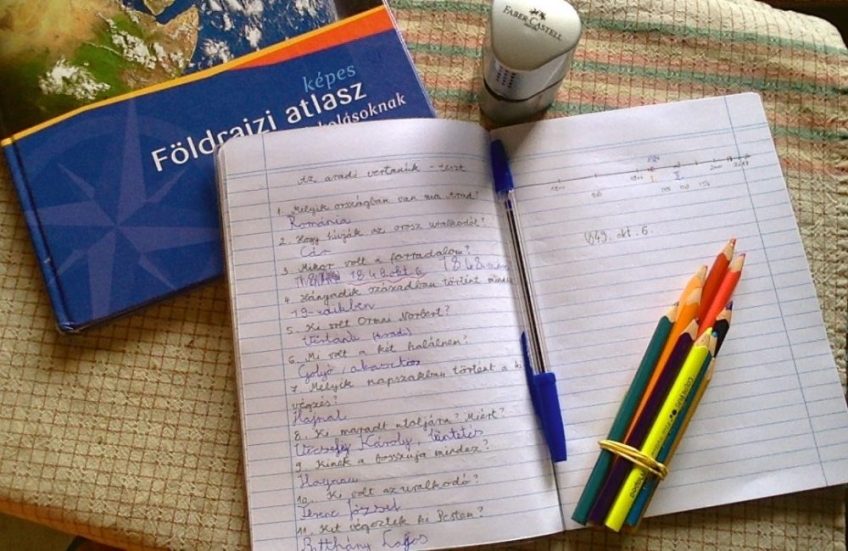 FABER-CASTELL
képes
Földrajzi atlasz
Az aradi vértanúk - teszt
1. Melyik országban van ma Arad?
Románia
2. Hogy hívják az orosz uralkodót?
Cár
3. Mikor volt a forradalom?
1848.okt.6. 1848
4. Hányadik században történt mindez
19-
5. Ki volt Ormai Norbert?
Vértanú (Arad)
6. Mi volt a két halálnem?
Golyó, akasztás
7. Melyik napszakban történt a ki
végzés?
Hajnal
8. Ki maradt utoljára? Miért?
Vécsey Károly, büntetés
9. Kinek a bosszúja mindez?
Haynau
10. Ki volt az uralkodó?
Ferenc József
11. Kit végeztek ki Pesten?
Batthány Lajos
1849. okt. 6.